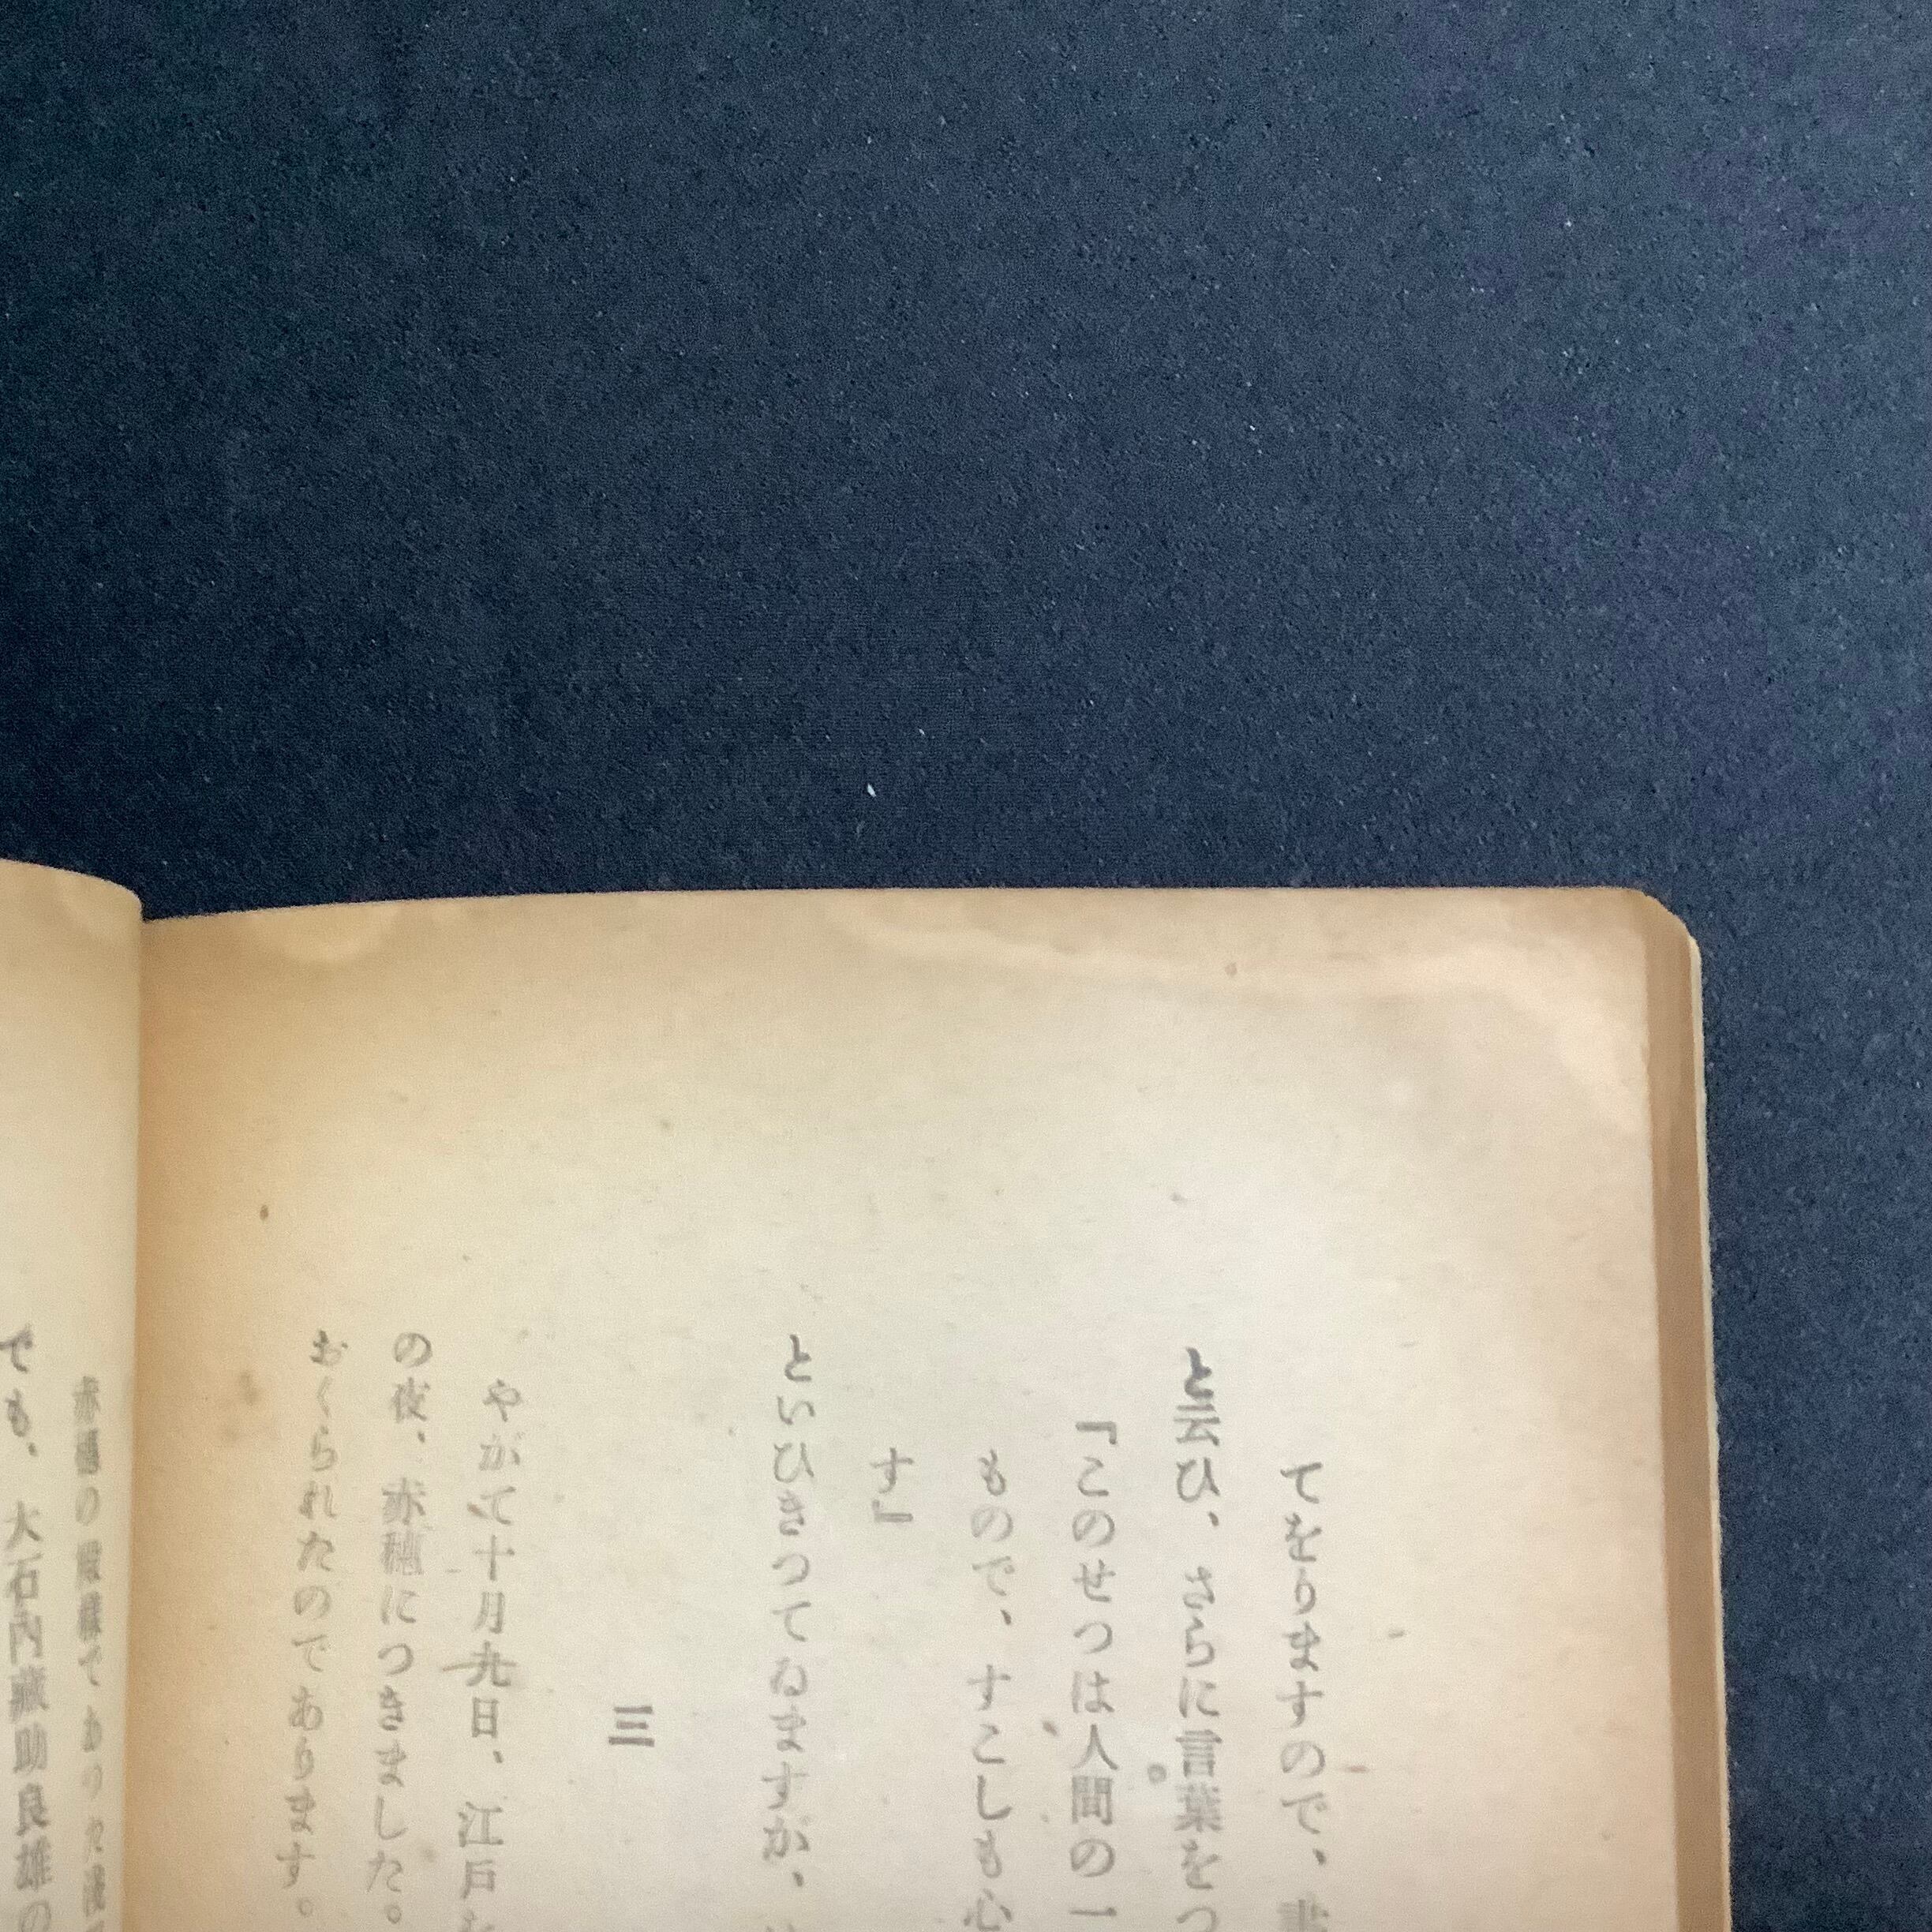 てをりますので、
と云ひ、さらに言葉をつ
『このせつは人間の一
もので、すこしも心
す』
といひきつてゐますが、
三
やがて十月九日、江戸を
の夜、赤穗につきました。
おくられたのであります。
赤穗の殿樣であつた淺
でも、大石內藏助良雄の